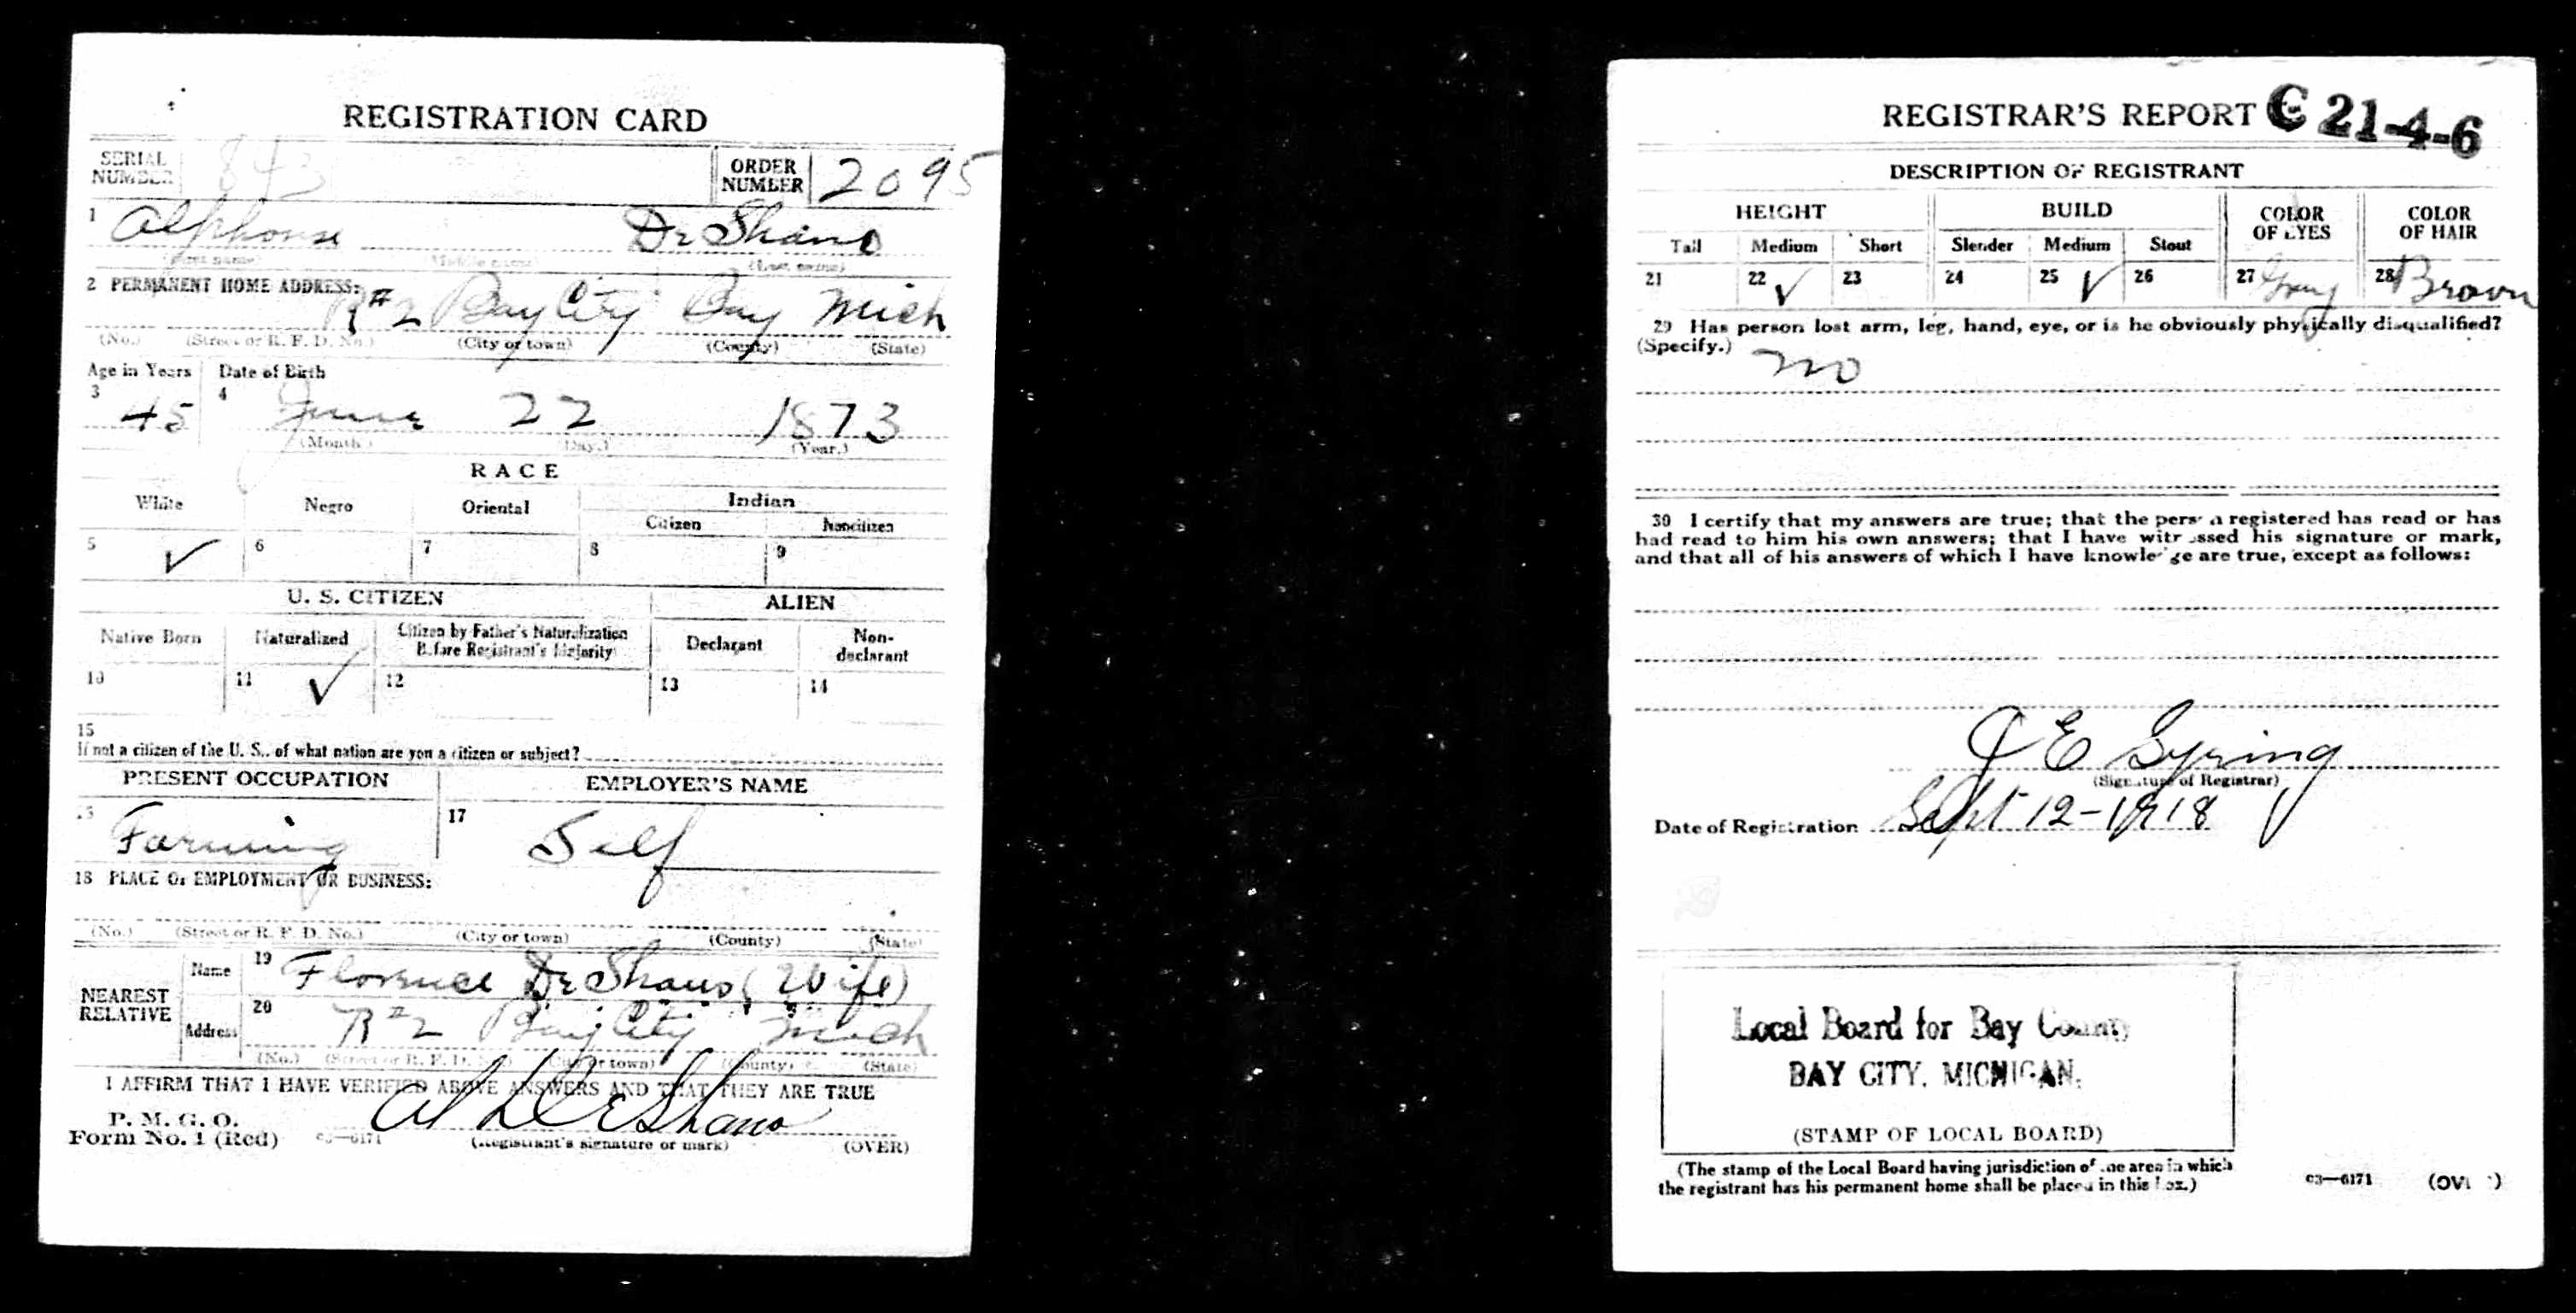 REGISTRATION CARD
SERIAL NUMBER 843 ORDER NUMBER 2095
1 Alphonse De Shano
(First name) (Middle name) (Last name)
2 PERMANENT HOME ADDRESS:
R#2 Bay City Bay Mich
(No.) (Street or R. F. D. No.) (City or town) (County) (State)
Age in Years Date of Birth
3 45 4 June 22 1873
(Month.) (Day.) (Year.)
RACE
White Negro Oriental Indian
Citizen Noncitizen
5 ✓ 6 7 8 9
U. S. CITIZEN ALIEN
Native Born Naturalized Citizen by Father's Naturalization Before Registrant's Majority Declarant Non-declarant
10 11 ✓ 12 13 14
15
If not a citizen of the U. S., of what nation are you a citizen or subject?
PRESENT OCCUPATION EMPLOYER'S NAME
16 Farming 17 Self
18 PLACE OF EMPLOYMENT OR BUSINESS:
(No.) (Street or R. F. D. No.) (City or town) (County) (State)
NEAREST RELATIVE
Name 19 Florence De Shano (Wife)
Address 20 R#2 Bay City Mich
(No.) (Street or R. F. D. No.) (City or town) (County) (State)
I AFFIRM THAT I HAVE VERIFIED ABOVE ANSWERS AND THAT THEY ARE TRUE
P. M. G. O.
Form No. 1 (Red) 03—6171 Al DeShano
(Registrant's signature or mark) (OVER)
REGISTRAR'S REPORT C 21-4-6
DESCRIPTION OF REGISTRANT
HEIGHT BUILD COLOR OF EYES COLOR OF HAIR
Tall Medium Short Slender Medium Stout
21 22 ✓ 23 24 25 ✓ 26 27 Gray 28 Brown
29 Has person lost arm, leg, hand, eye, or is he obviously physically disqualified?
(Specify.) no
30 I certify that my answers are true; that the person registered has read or has
had read to him his own answers; that I have witnessed his signature or mark,
and that all of his answers of which I have knowledge are true, except as follows:
J E Gyring
(Signature of Registrar)
Date of Registration Sept 12-1918
Local Board for Bay County
BAY CITY, MICHIGAN.
(STAMP OF LOCAL BOARD)
(The stamp of the Local Board having jurisdiction of the area in which
the registrant has his permanent home shall be placed in this box.)
03—6171 (OVER)